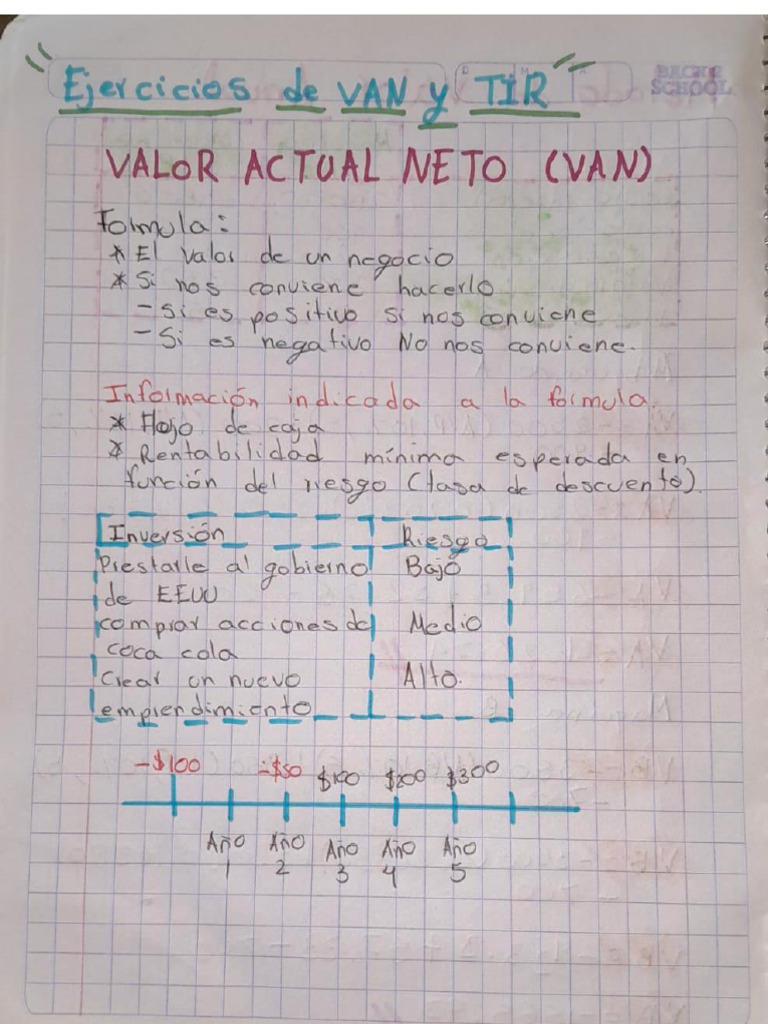 Ejercicios de VAN y TIR
BACK 2
SCHOOL
VALOR ACTUAL NETO (VAN)
Formula:
* El valor de un negocio
* Si nos conviene hacerlo
- Si es positivo si nos conviene
- Si es negativo No nos conviene.
Información indicada a la formula.
* Flojo de caja
* Rentabilidad mínima esperada en
función del riesgo (tasa de descuento).
Inversión Riesgo
Prestarle al gobierno Bajo
de EEUU
comprar acciones de Medio
coca cola
Crear un nuevo Alto.
emprendimiento
-$100 -$50 $100 $200 $300
Año Año Año Año Año
1 2 3 4 5